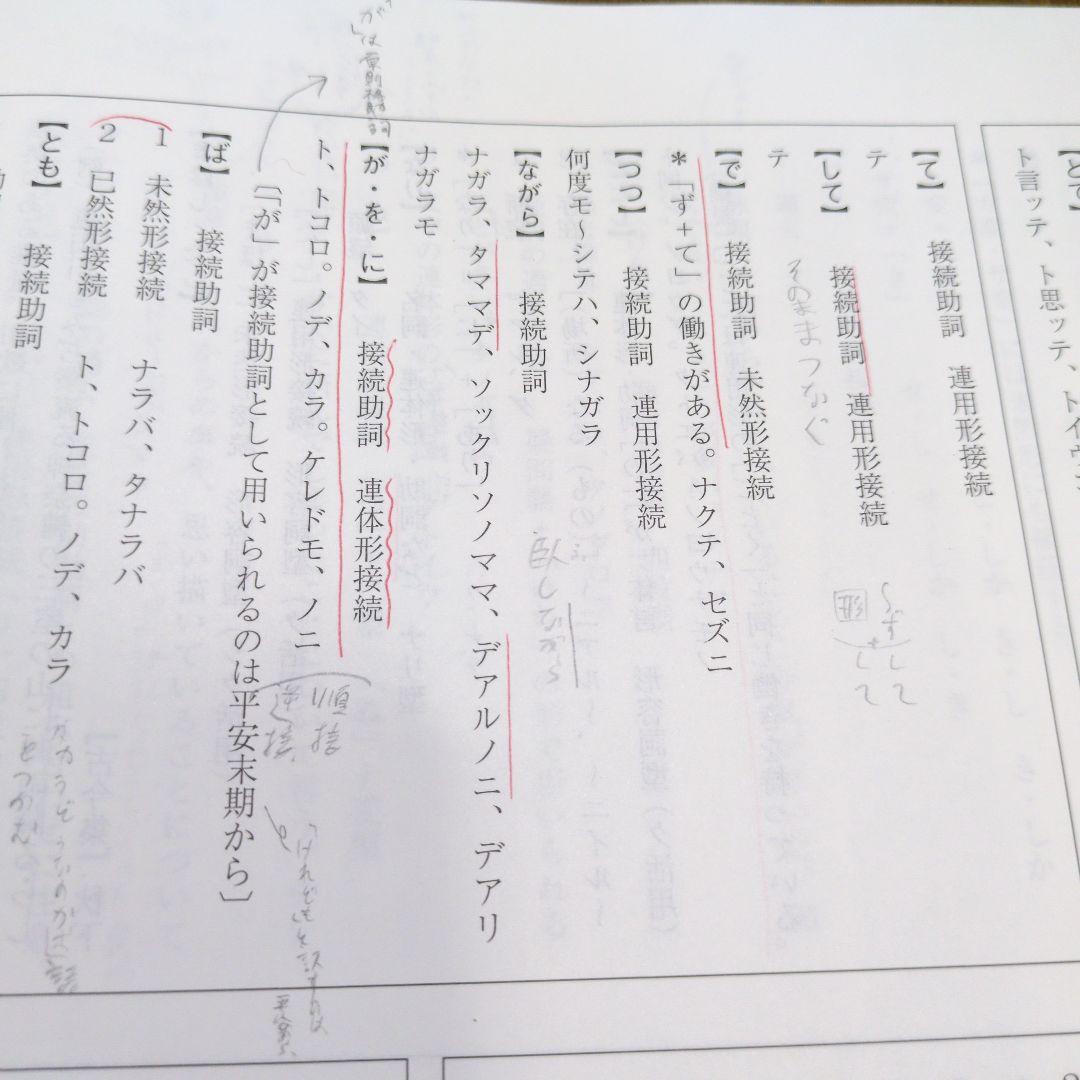 【とて】
ト言ッテ、ト思ッテ、トイウ
【て】　接続助詞　連用形接続
テ
【して】　接続助詞　連用形接続
テ
そのままつなぐ
【で】　接続助詞　未然形接続
＊「ず＋て」の働きがある。ナクテ、セズニ
【つつ】　接続助詞　連用形接続
何度モ～シテハ、シナガラ
【ながら】　接続助詞
ナガラ、タママデ、ソックリソノママ、デアルノニ、デアリ
ナガラモ
【が・を・に】　接続助詞　連体形接続
ト、トコロ。ノデ、カラ。ケレドモ、ノニ
順接
逆接
「が」は原則格助詞
〔「が」が接続助詞として用いられるのは平安末期から〕
【ば】　接続助詞
1　未然形接続　ナラバ、タナラバ
2　已然形接続　ト、トコロ。ノデ、カラ
【とも】　接続助詞